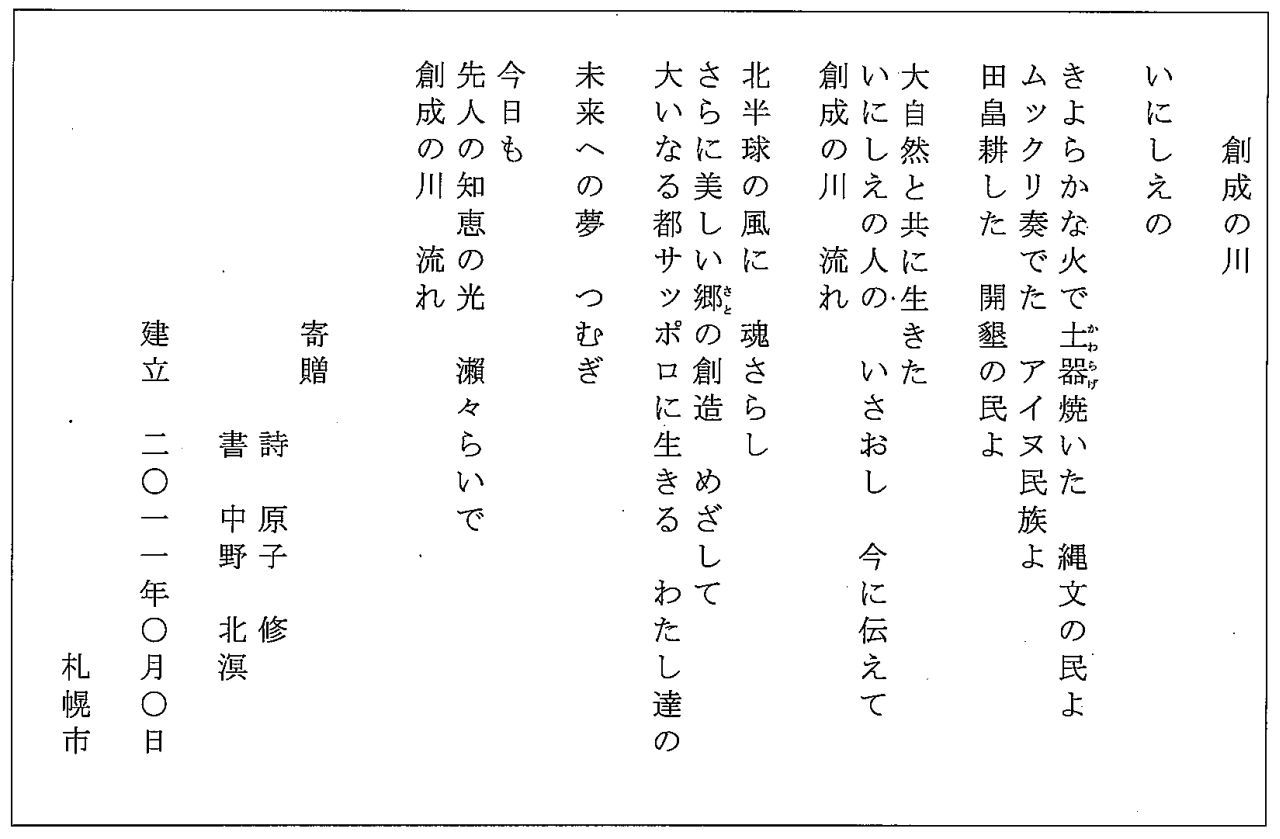 創成の川
いにしえの
きよらかな火で土器焼いた　縄文の民よ
かわらげ
ムックリ奏でた　アイヌ民族よ
田畠耕した　開墾の民よ
大自然と共に生きた
いにしえの人の　いさおし　今に伝えて
創成の川　流れ
北半球の風に　魂さらし
さらに美しい郷の創造　めざして
さと
大いなる都サッポロに生きる　わたし達の
未来への夢　つむぎ
今日も
先人の知恵の光　瀬々らいで
創成の川　流れ
寄贈
詩　原子　修
書　中野　北溟
建立　二〇一一年〇月〇日
札幌市